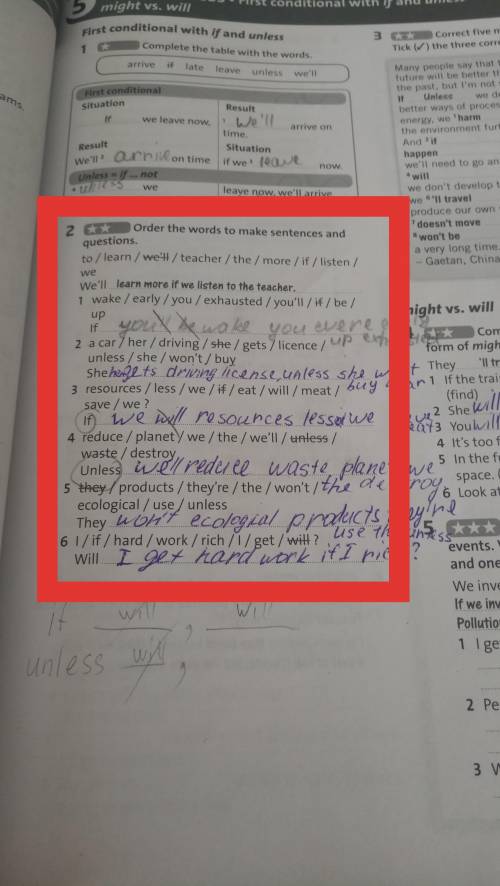 5
might vs. will
First conditional with if and unless
1 ★ Complete the table with the words.
arrive if late leave unless we'll
First conditional
Situation
Result
If we leave now,
¹ We'll arrive on
time.
Result
Situation
We'll ² arrive on time
If we ³ leave now.
Unless = if ... not
⁴ unless we
leave now, we'll arrive
2 ★★ Order the words to make sentences and
questions.
to / learn / we'll / teacher / the / more / if / listen /
we
We'll learn more if we listen to the teacher.
1 wake / early / you / exhausted / you'll / if / be /
up
If you'll be wake you
2 a car / her / driving / she / gets / licence /
unless / she / won't / buy
She gets driving license, unless she
buy
3 resources / less / we / if / eat / will / meat /
save / we ?
If we will resources less we
4 reduce / planet / we / the / we'll / unless /
waste / destroy
Unless we'll reduce waste planet we
the destroy
5 they / products / they're / the / won't /
ecological / use / unless
They won't ecological products they're
use the unless
6 I / if / hard / work / rich / I / get / will ?
Will I get hard work if I rich ?
if will , will
unless will ,
3 ★★ Correct five m
Tick (✓) the three corre
Many people say that t
future will be better th
the past, but I'm not
If Unless we de
better ways of proces
energy, we ¹harm
the environment furt
And ²if
happen
we'll need to go an
⁴will
we don't develop t
we ⁶'ll travel
produce our own
⁷doesn't move
⁸won't be
a very long time.
– Gaetan, China
might vs. will
4 ★ Com
form of migh
They 'll tr
1 If the trai
(find)
2 She will
3 You will
4 It's too f
5 In the fu
space. (
6 Look at
5 ★★★
events. W
and one
We inve
If we inv
Pollutio
1 I ge
2 Pe
3 W
ams.